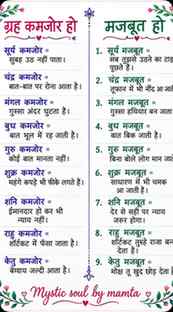 ग्रह कमजोर हो
सूर्य कमजोर =
सुबह उठ नहीं पाता।
चंद्र कमजोर =
बात-बात पर रोना आता है।
मंगल कमजोर =
गुस्सा अंदर घुटता है।
बुध कमजोर =
बात भूल में रह जाती है।
गुरु कमजोर =
कोई बात मानता नहीं।
शुक्र कमजोर =
महंगे कपड़े भी फीके लगते है।
शनि कमजोर =
ईमानदार हो कर भी
न्याय नहीं।
राहु कमजोर =
शॉर्टकट में फंसा जाता है।
केतु कमजोर =
बेवजह जल्दी आता है।
मजबूत हो
1. सूर्य मजबूत =
सब तुझसे उठने का टाइम
पूछते है।
2. चंद्र मजबूत =
तूफान में भी नींद आ
3. मंगल मजबूत =
गुस्सा हथियार बन जाता
4. बुध मजबूत =
बात बिक जाती है।
5. गुरु मजबूत =
बिना बोले लोग मान
6. शुक्र मजबूत =
साधारण में भी चमक
आ जाती है।
7. शनि मजबूत =
देर से सही पर न्याय
जरूर होगा।
8. राहु मजबूत =
शॉर्टकट तुझे राजा बना
देता है।
9. केतु मजबूत =
मोक्ष तू खुद छोड़ देता
Mystic soul by mamta